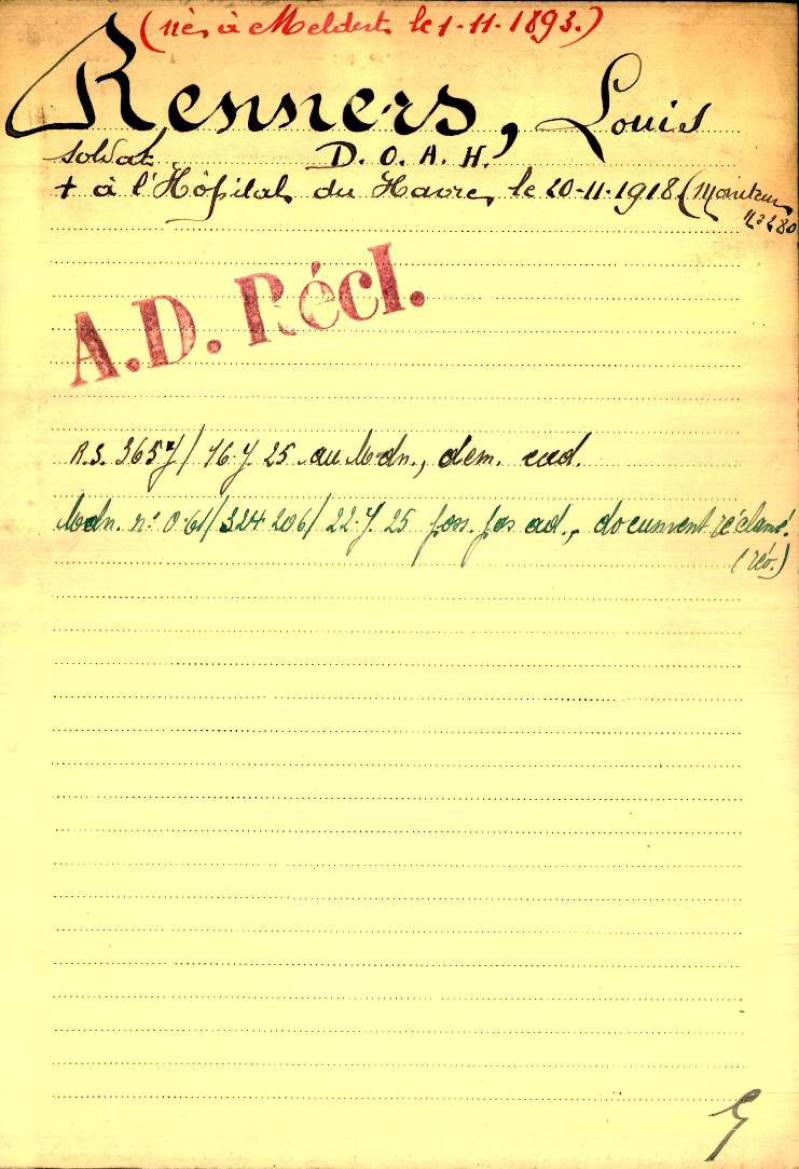 (né à Meldert le 1-11-1893.)
Renners, Louis
soldat D. O. A. H.
+ à l'Hôpital du Havre, le 20-11-1918 (Moniteur
A.D. Récl.
R.S. 3657/16.7.25 au Mdn., dem. ead.
Mdn. n° 0.61/324206/22.7.25 pas ad., document réclamé.
(rév.)